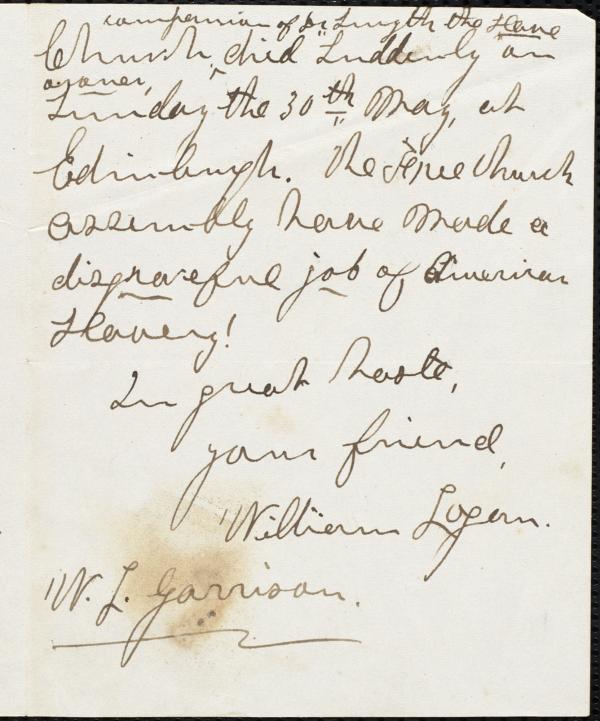 companion of Dr Smyth the Slave
Church, died Suddenly on
owner,
Sunday the 30th May, at
Edinburgh. The Free Church
assembly have made a
disgraceful job of American
Slavery!
In great haste,
your friend,
William Logan.
W. L. Garrison.